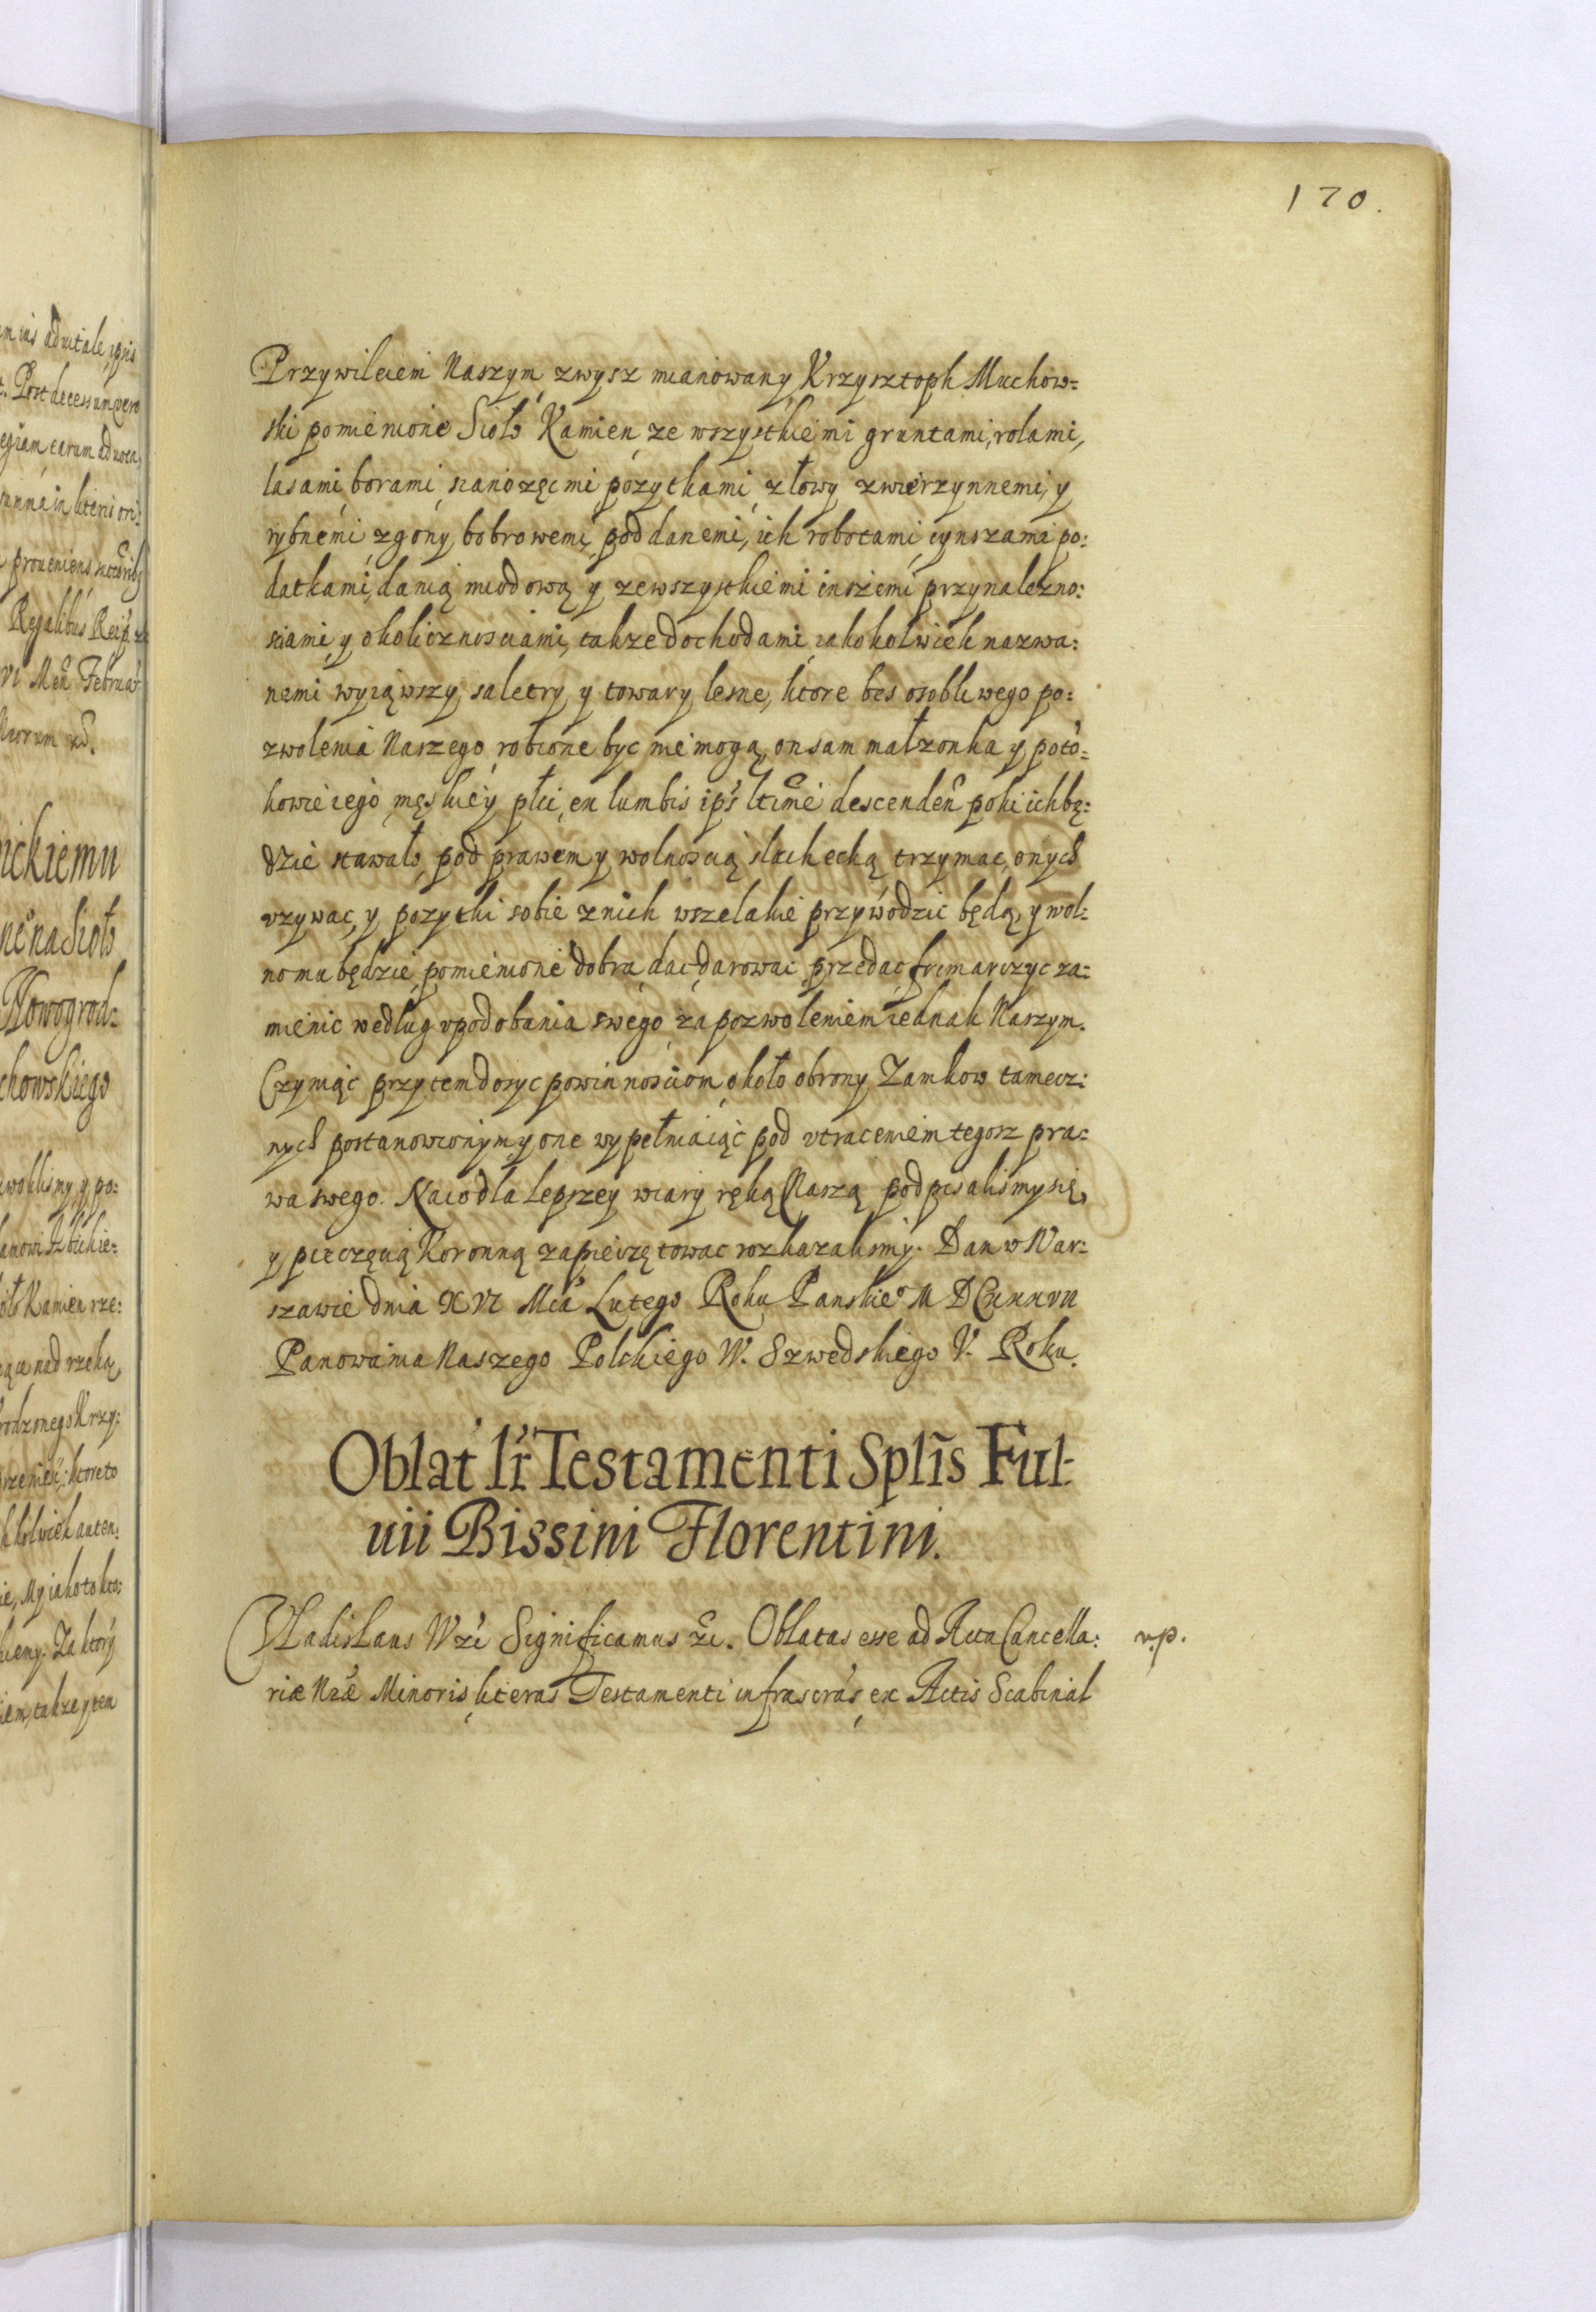 170.
Przywileiem Naszym zwysz mianowany Krzysztoph Muchow=
ski pomienione Sioło Kamien ze wszystkiemi gruntami, rolami,
lasami borami sianożęćmi pożytkami złowy zwierzynnemi, y
rybnemi zgony bobrowemi, poddanemi, ich robotami cynszami po:
datkami, danią miodową y zewszystkiemi inszemi przynalezno:
sciami y okolicznosciami, takze dochodami iakokolwiek nazwa:
nemi wyiąwszy saletry y towary lesne, ktore bes osobliwego po:
zwolenia Naszego robione byc nie mogą, on sam małzonka y poto:
kowie iego męskiey płci, ex lumbis ips ltime descenden poki ich bę:
dzie stawało, pod prawem y wolnoscią slachecką trzymac, onych
vzywac, y pozytki sobie z nich wszelakie przywodzic będą, y wol:
no mu będzie pomienione dobra dac darowac przedac frimarczyc za:
mienic według vpodobania swego za pozwoleniem iednak Naszym.
Czyniąc przytem dosyc powinnosciom około obrony Zamkow tamecz:
nych postanowionym y one wypełniaiąc pod vtraceniem tegosz pra:
wa swego. Naco dla lepszey wiary ręką Naszą podpisalismy się,
y pieczęcią Koronną zapieczętowac rozkazalismy. Dan w War:
szawie dnia XVI Mca Lutego Roku Panskieº M DCXXXVII
Panowania Naszego Polskiego V. Szwedskiego V. Roku.
Oblat lr Testamenti Splis Ful:
uii Bissini Florentini.
Vladislaus IV etc Significamus etc. Oblatas esse ad Acta Cancella:
v.p.
riæ Nræ Minoris literas Testamenti infrascras ex Actis Scabinal